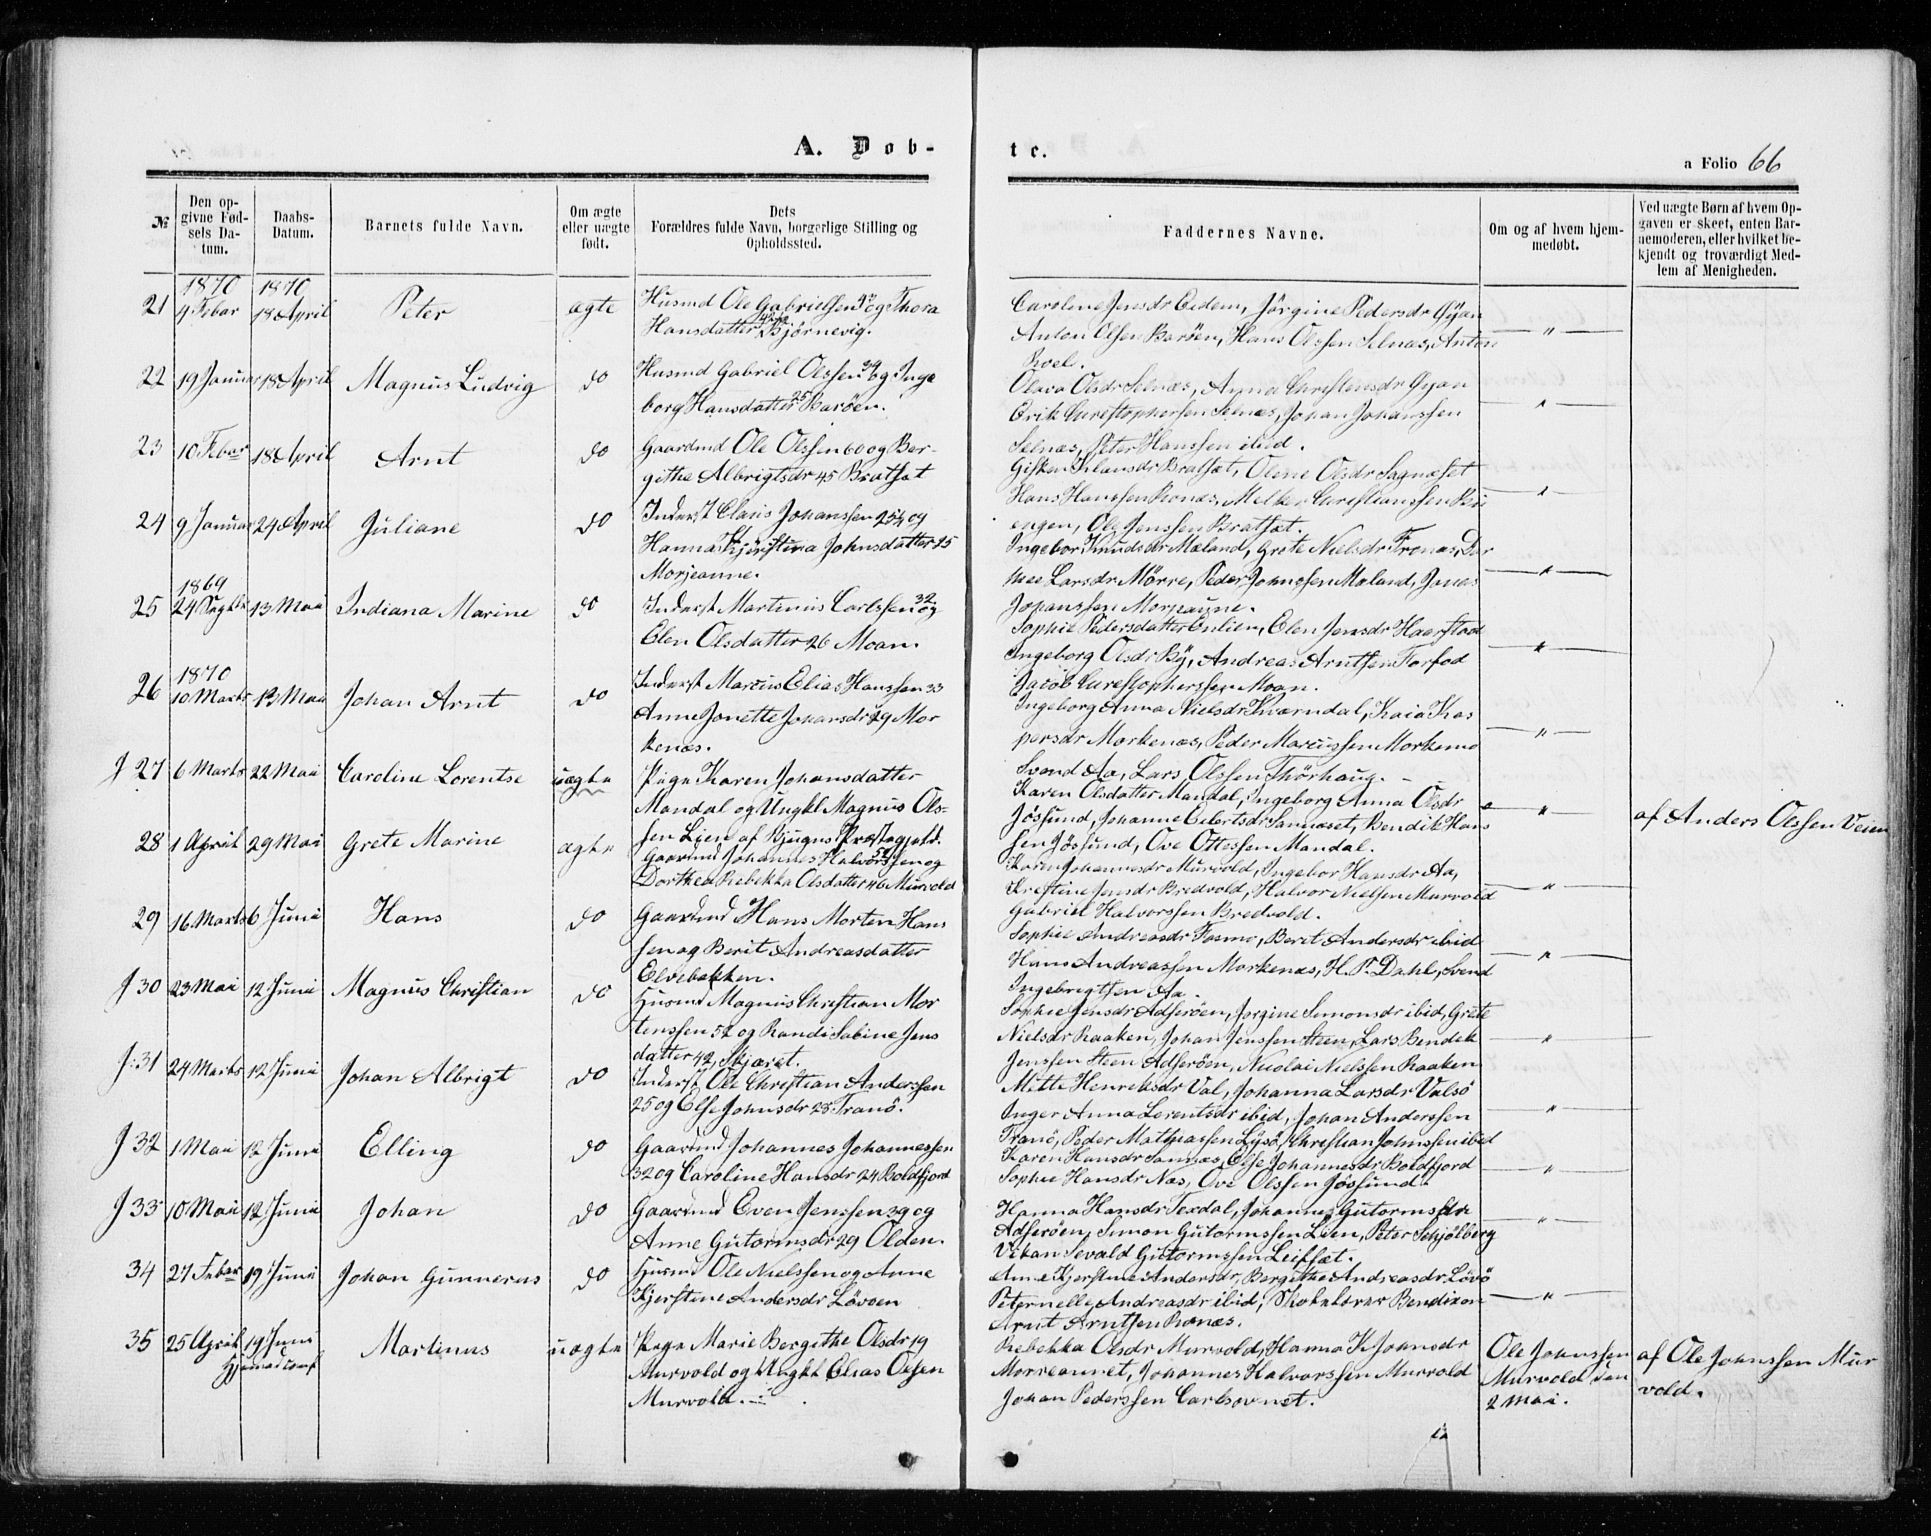 A. Dob-
te.
a Folio 66
№
Den opgivne Fødsels Datum.
Daabs-Datum.
Barnets fulde Navn.
Om ægte eller uægte født.
Dets Forældres fulde Navn, borgerlige Stilling og Opholdssted.
Faddernes Navne.
Om og af hvem hjemmedøbt.
Ved uægte Børn af hvem Opgaven er skeet, enten Barnemoderen, eller hvilket bekjendt og troværdigt Medlem af Menigheden.
1870 1870
21 4 Febar 18 April Peter ægte Husmd Ole Gabrielsen og Thora
Hansdatter Bjørnevig.
Caroline Jensdr Eidem, Jørgine Pedersdr Øyan
Anton Olsen Barøen, Hans Olssen Selnæs, Anton
Roel. — " —
22 19 Januar 18 April Magnus Ludvig do Husmd Gabriel Olssen 34 og Inge
borg Hansdatter 25 Barøen.
Olava Olsdr Selnæs, Anna Christensdr Øyan
Erik Christophersen Selnæs, Johan Johanssen
Selnæs, Peter Hanssen ibid. — " —
23 10 Febar 18 April Arnt do Gaardmd Ole Olssen 60 og Ber-
githe Albrigtsdr 45 Bratsæt
Gisken Klausdr Bratsæt, Olene Olsdr Sagnæset
Hans Hanssen Ronæs, Melker Christianssen
engen, Ole Jenssen Bratsæt. — " —
24 9 Januar 24 April Juliane do Inderst Claus Johanssen 25½ og
Hanna Kjerstina Johnsdatter 25
Morjeanne.
Ingebor Knudsdr Mæland, Grete Nielsdr Fronæs, Dor
thee Larsdr Mørre, Peder Johnssen Moland, Jonas
Johanssen Morjeaune. — " —
1869
25 24 Septbr 13 Mai Indiana Marine do Inderst Martinus Carlssen 32 og
Elen Olsdatter 26 Moan.
Sophie Pedersdatter Enlien, Elen Jensdr Haarstad
Ingeborg Olsdr By, Andreas Arntsen Torfod
Jacob Christophersen Moan. — " —
1870
26 10 Marts 13 Mai Johan Arnt do Inderst Marcus Elias Hanssen 33
Anne Jonette Johansdr 29 Mor
kenæs.
Ingeborg Anna Nielsdr Kværndal, Kaia Kas
persdr Morkenæs, Peder Marcussen Morkemo
Svend Aa, Lars Olssen Thørhaug. — " —
J 27 6 Marts 22 Mai Caroline Lorentse uægte Pige Karen Johansdatter
Mandal og Ungkl Magnus Ols-
sen Lien af Bjugns Præstegjeld.
Karen Olsdatter Mandal, Ingeborg Anna Olsdr
Jøssund, Johanne Eilertsdr Sannæset, Bendik Hans
sen Jøssund, Ove Ottessen Mandal. — " — af Anders Olssen Veien
28 1 April 29 Mai Grete Marine ægte Gaardmd Johannes Halvorssen og
Dorthea Rebekka Olsdatter 46 Murvold
Karen Johannesdr Murvold, Ingebor Hansdr Aa,
Krestine Jensdr Bredvold, Halvor Nielsen Murvold
Gabriel Halvorssen Bredvold. — " —
29 16 Marts 6 Juni Hans do Gaardmd Hans Morten Hans
sen og Berit Andreasdatter
Elvebakken.
Sophie Andreasdr Fosmo, Beret Andersdr ibid
Hans Andreassen Morkenæs, H. P. Dahl, Svend
Ingebrigtsen Aa. — " —
J 30 23 Mai 12 Juni Magnus Christian do Husmd Magnus Christian Mor
tenssen 52 og Randi Sabine Jens
datter 42, Skjæret.
Sophie Jensdr Adserøen, Jorgine Simonsdr ibid, Grete
Nielsdr Raaken, Johan Jenssen Steen, Lars Bendik
Jenssen Steen Adserøen, Nicolai Nielssen Raaken — " —
J: 31 24 Marts 12 Juni Johan Albrigt do Inderst Ole Christian Anderssen
25 og Else Johnsdr 28 Tranö.
Mette Henriksdr Val, Johanna Larsdr Valsö
Inger Anna Lorentsdr ibid, Johan Anderssen
Tranö, Peder Mathiassen Lysö, Christian Johnssen ibid — " —
J 32 1 Mai 12 Juni Elling do Gaardmd Johannes Johannessen
32 og Caroline Hansdr 24 Boldfjord
Karen Hansdr Sannæs, Else Johannesdr Boldfjord
Sophie Hansdr Næs, Ove Olssen Jøssund. — " —
J 33 10 Mai 12 Juni Johan do Gaardmd Even Jenssen 39 og
Anne Gutormsdr 29 Olden.
Hanna Hansdr Texdal, Johanne Gutormsdr
Adserøen, Simon Gutormssen Lien, Peter Schjölberg
Vikan Sevald Gutormssen Leifsæt. — " —
34 27 Febar 19 Juni Johan Gunnerus do Husmd Ole Nielssen og Anne
Kjerstine Andersdr Lövöen
Anne Kjerstine Andersdr, Bergithe Andreasdr Lövö
Peternelle Andreasdr ibid, Skolelærer Bendixen
Arnt Arntsen Ronæs. — " —
35 25 April 19 Juni Martinus uægte Pige Marie Bergithe Olsdr 19
Hjemmed. conf. Murvold og Ungkl Elias Olsen
Murvold.
Rebekka Olsdr Murvold, Hanna K. Johnsdr
Morreaunet, Johannes Halvorssen Murvold
Johan Pederssen Carlsovnet.
Ole Johnssen
Murvold den
2 Mai.
af Ole Johnssen Mur
vold.